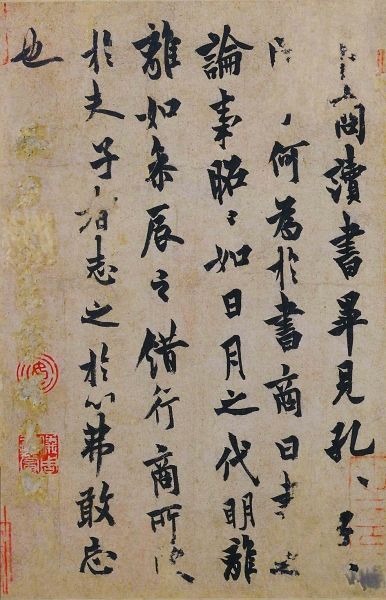 卜商讀書畢見孔〻子〻
問〻何為於書商曰書之
論事昭〻如日月之代明離
離如參辰之錯行商所受
於夫子者志之於心弗敢忘
也